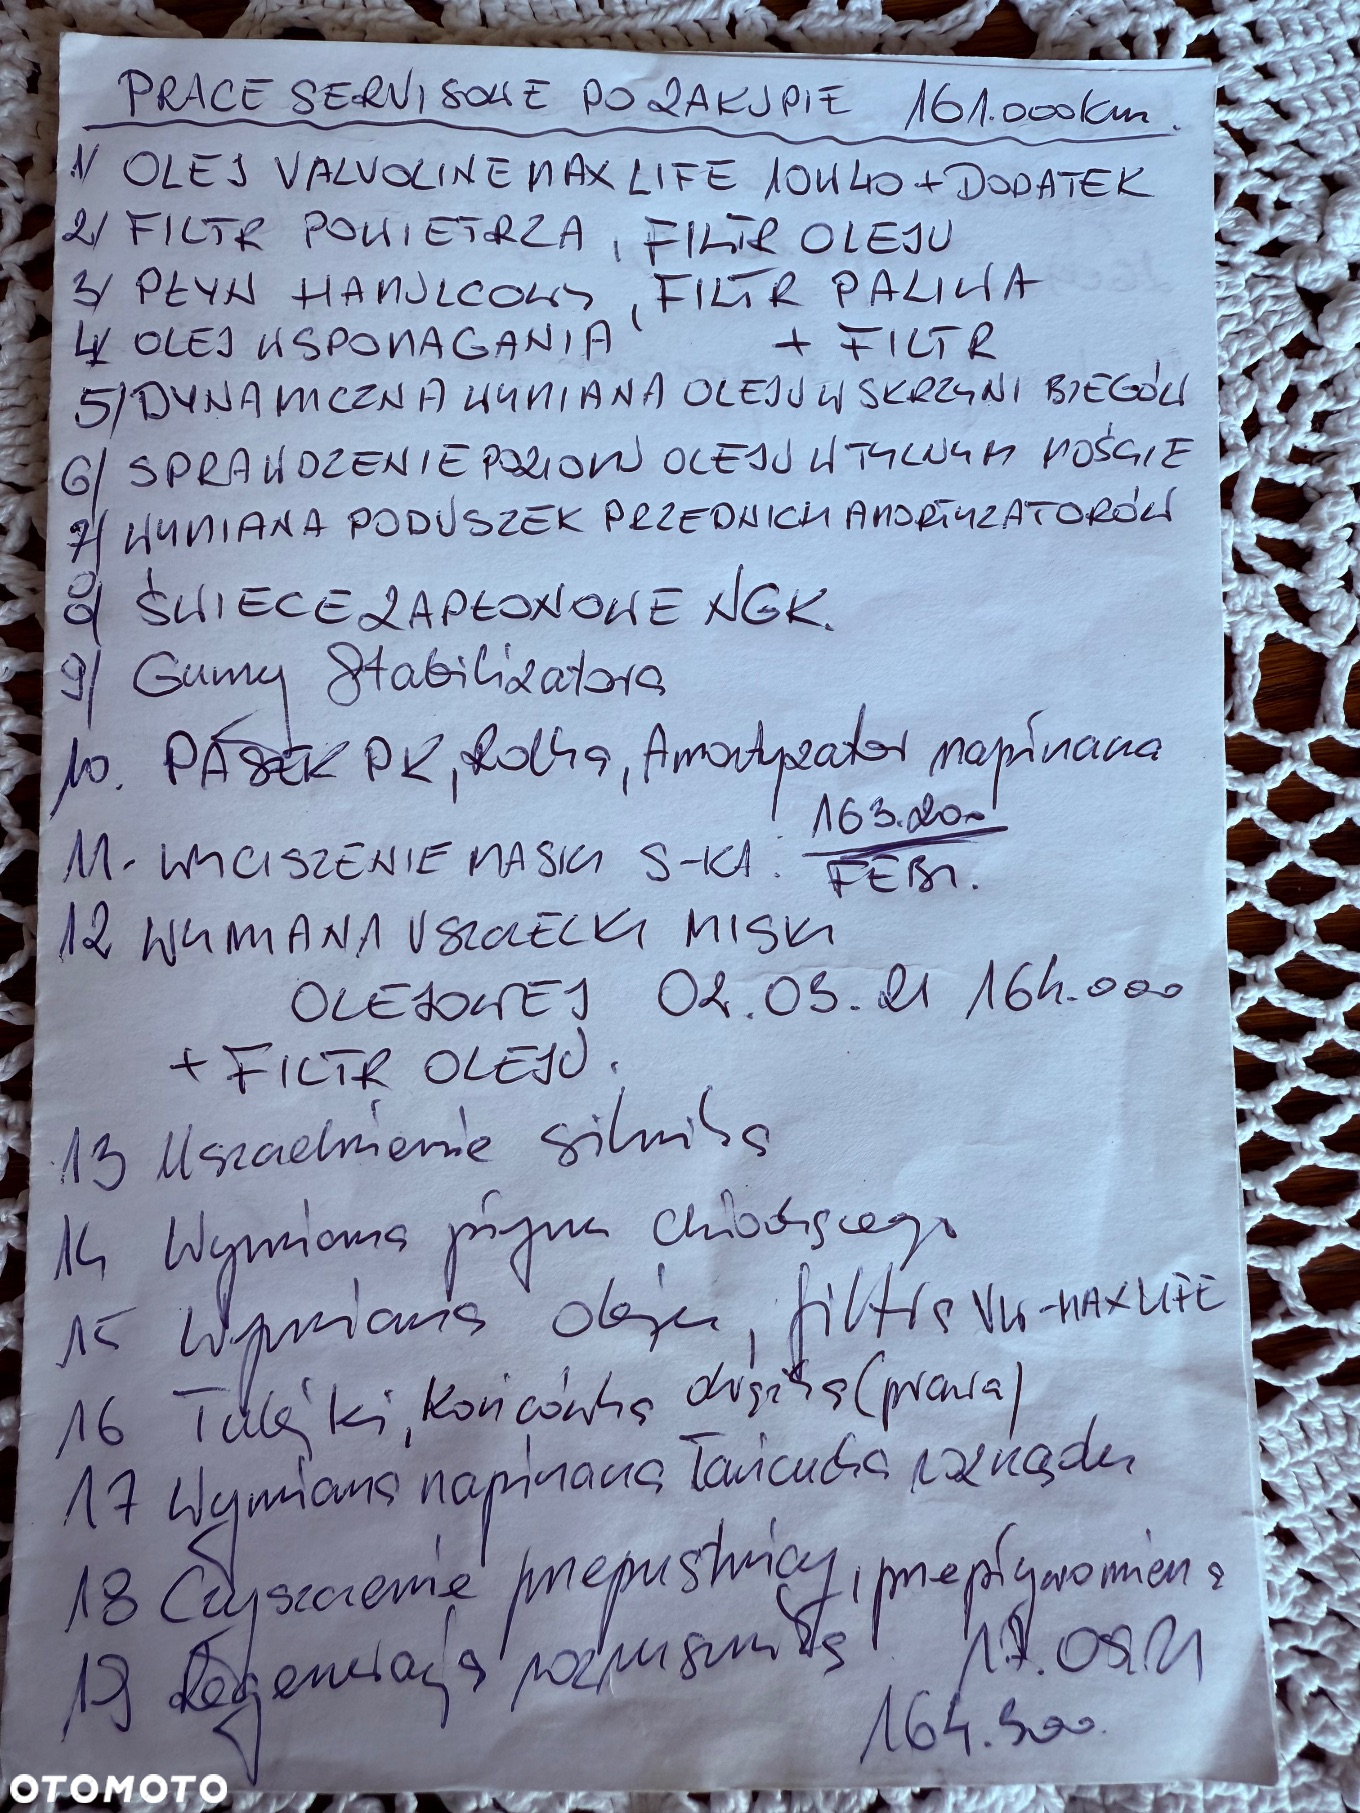 PRACE SERWISOWE PO ZAKUPIE 161.000km.
1/ OLEJ VALVOLINE MAX LIFE 10W40 + DODATEK
2/ FILTR POWIETRZA, FILTR OLEJU
3/ PŁYN HAMULCOWY, FILTR PALIWA
4/ OLEJ WSPOMAGANIA + FILTR
5/ DYNAMICZNA WYMIANA OLEJU W SKRZYNI BIEGÓW
6/ SPRAWDZENIE POZIOMU OLEJU W TYLNYM MOŚCIE
7/ WYMIANA PODUSZEK PRZEDNICH AMORTYZATORÓW
8/ ŚWIECE ZAPŁONOWE NGK.
9/ Gumy Stabilizatora
10. PASEK PK, Rolka, Amortyzator napinacza
163.200
11. WYCISZENIE MASKI S-KA. FEBI.
12 WYMIANA USZCZELKI MISKI
OLEJOWEJ 02.03.21 164.000
+ FILTR OLEJU.
13 Uszczelnienie silnika
14 Wymiana płynu chłodzącego
15 Wymiana oleju, filtra VW-MAXLIFE
16 Tulejki, Końcówka drążka (prawa)
17 Wymiana napinacza łańcucha rozrządu
18 Czyszczenie przepustnicy, przepływomierza
19 Regeneracja rozrusznika 17.09.21
164.500.
OTOMOTO